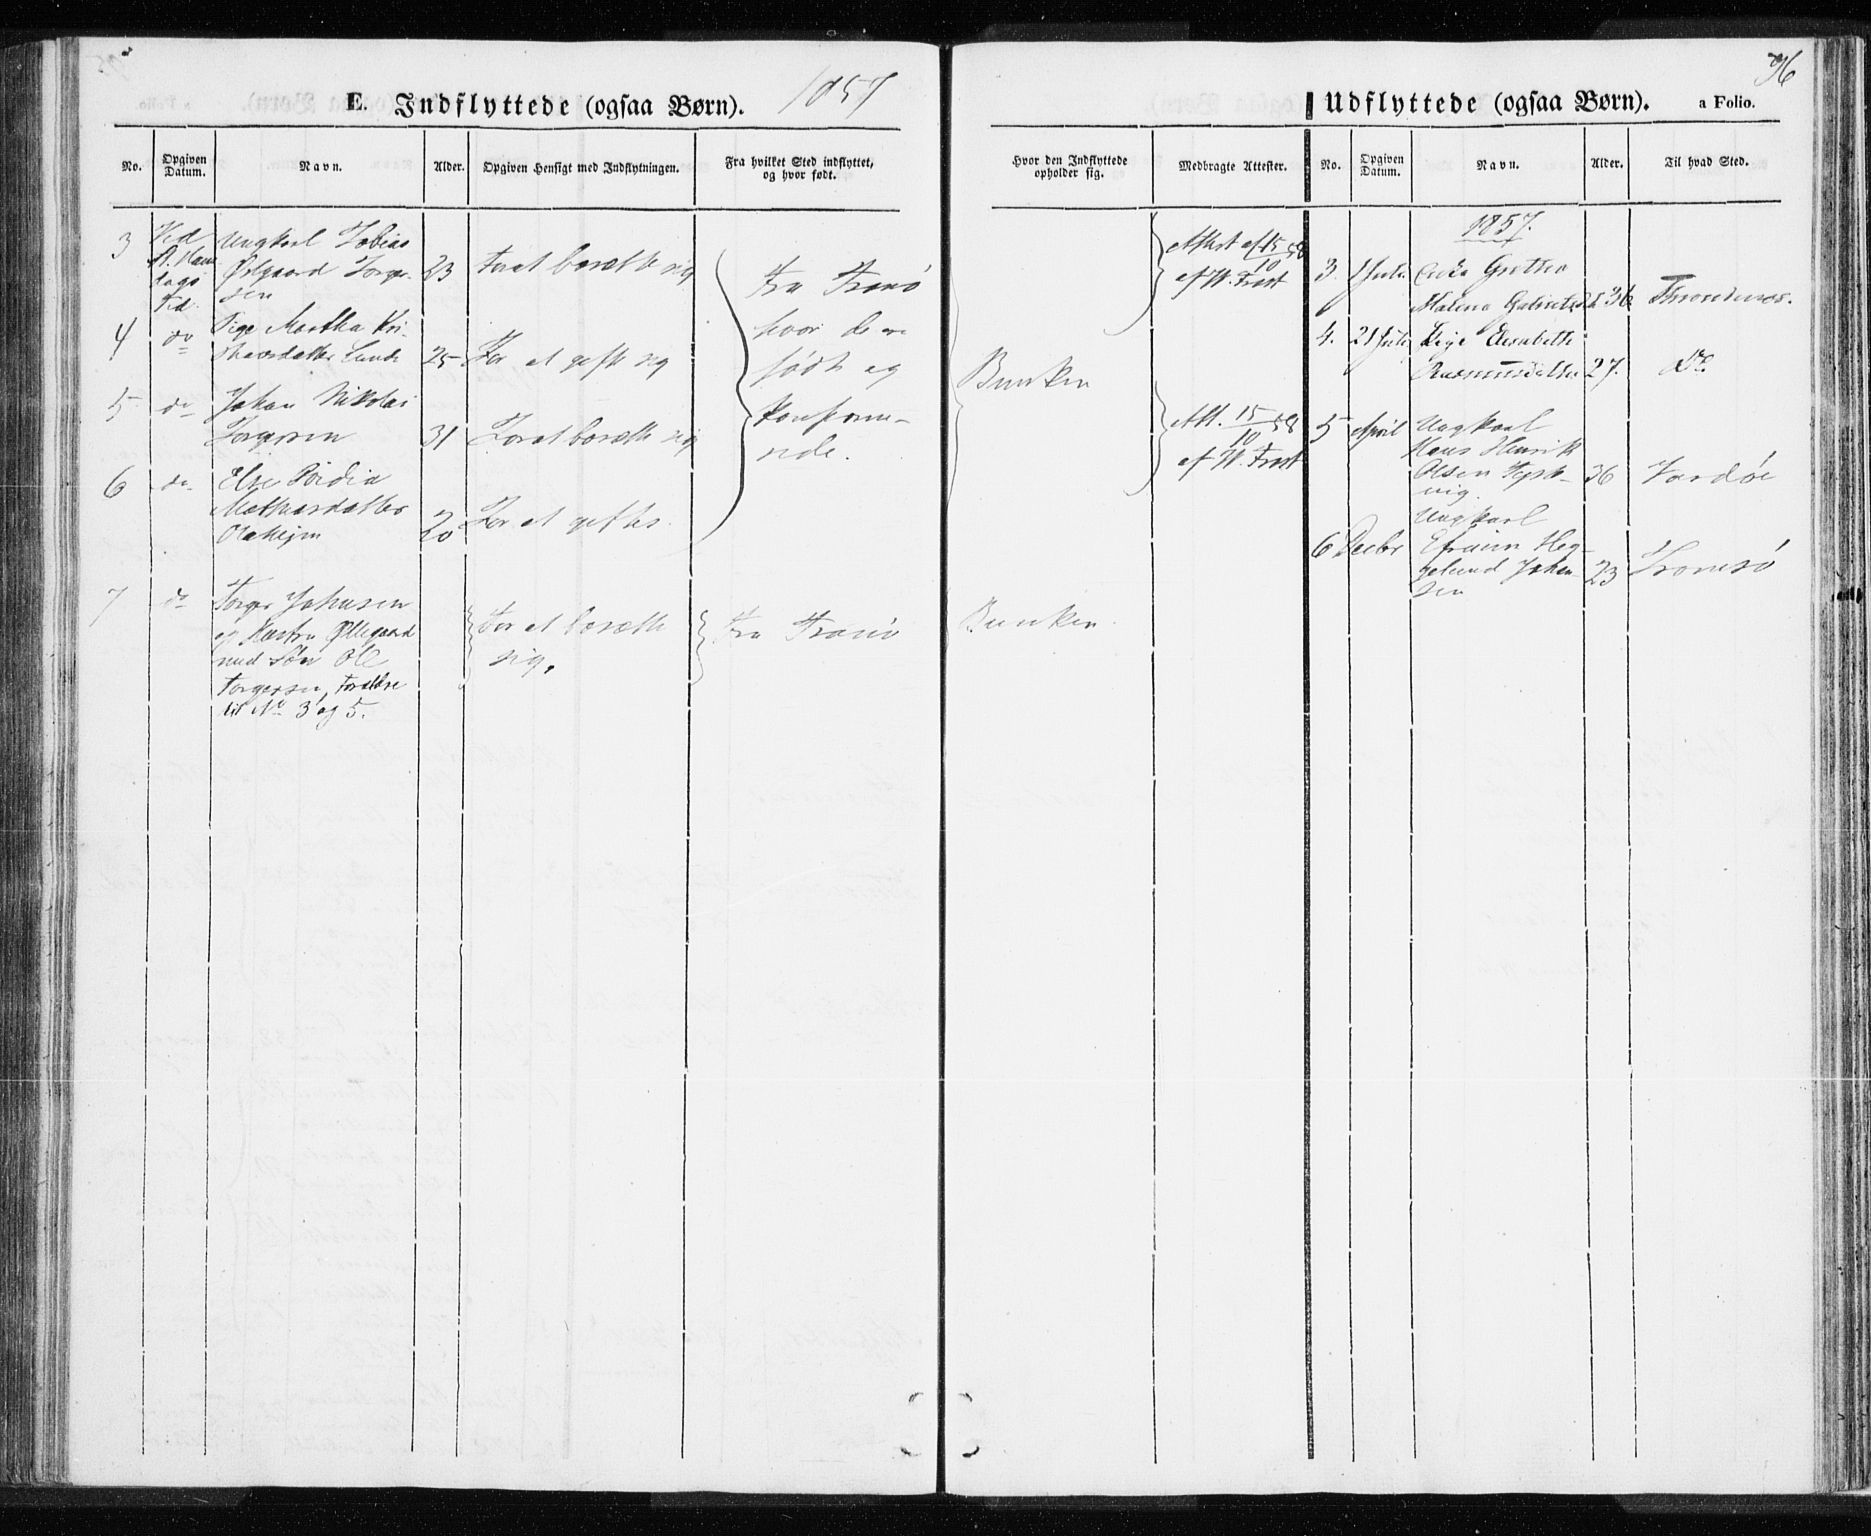 96
E. Indflyttede (ogsaa Børn). 1857
No.
Opgiven Datum.
Navn.
Alder.
Opgiven Hensigt med Indflytningen.
Fra hvilket Sted indflyttet, og hvor født.
3
Ved
St. Hans
dags
tid.
Ungkarl Tobias
Ølgaard Torger-
sen
23
For at bosætte sig
Fra Tranø
hvor de ere
født og
konfirme-
rede.
4
do
Pige Martha Kri-
stensdatter Lunde
25
For at gifte sig
5
do
Johan Nikolai
Torgersen
31
For at bosætte sig
6
do
Else
Mathiasdatter
20
For at giftes.
7
do
Torger Johnsen
og Kastru Øllegaard
med Søn Ole
Torgersen, Forældre
til No 3 og 5.
For at bosætte
sig.
Fra Tranø
Udflyttede (ogsaa Børn). a Folio.
Hvor den Indflyttede opholder sig.
Medbragte Attester.
No.
Opgiven Datum.
Navn.
Alder.
Til hvad Sted.
Bunken
Attest af 15/10 58
af H. Frost
Att. 15/10 58
af H. Frost
Bunken.
1857.
3.
1 Juli
Malena
36
Throndenæs.
4.
21 Juli
Pige Elisabeth
Rasmusdatter
27.
Do.
5
April
Ungkarl
Hans Henrik
Olsen
vig.
36
Vardøe
6
Decbr
Ungkarl
Efraim Heg-
gelund Johan-
sen
23
Tromsø